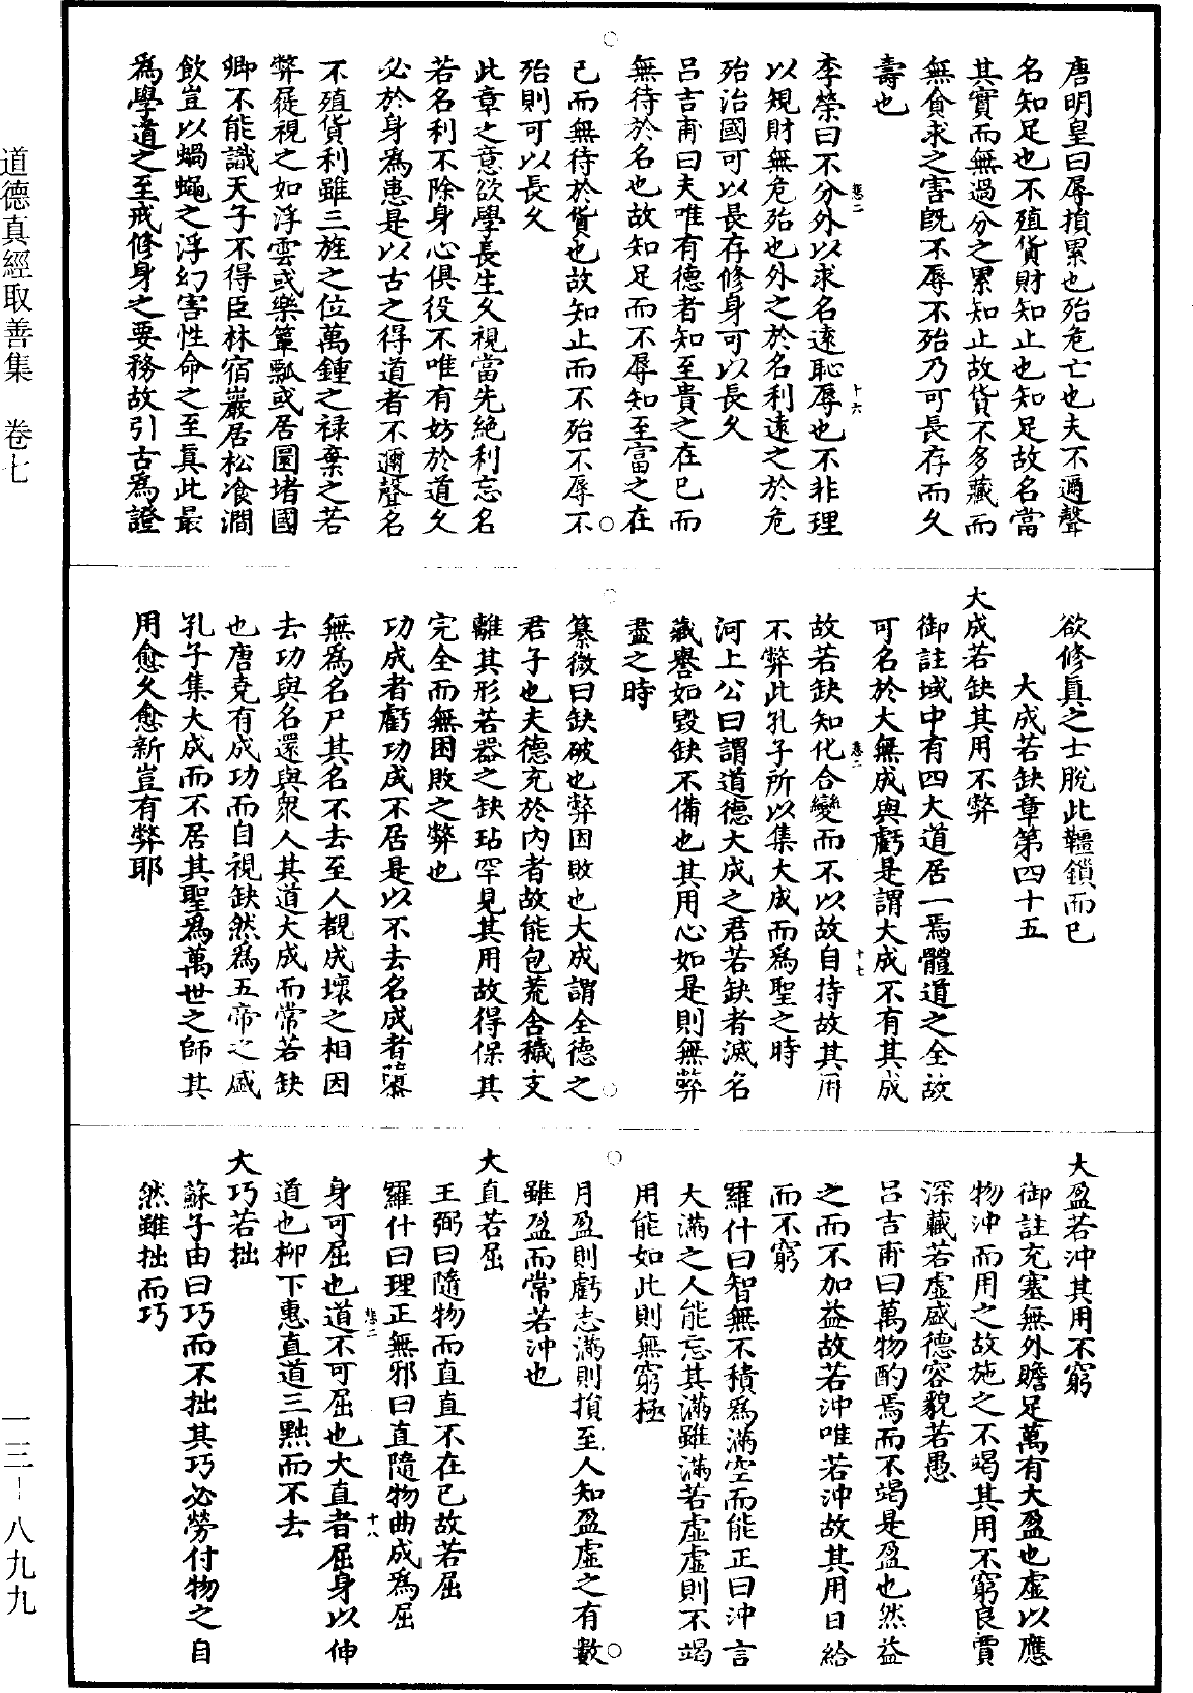 唐明皇曰辱損累也殆危亡也夫不邇聲
名知足也不殖貨財知止也知足故名當
其實而無過分之累知止故貨不多藏而
無貪求之害旣不辱不殆乃可長存而久
壽也
李榮曰不分外以求名遠恥辱也不非理
以規財無危殆也外之於名利遠之於危
殆治國可以長存修身可以長久
呂吉甫曰夫唯有德者知至貴之在己而
無待於名也故知足而不辱知至富之在
己而無待於貨也故知止而不殆不辱不
殆則可以長久
此章之意欲學長生久視當先絶利忘名
若名利不除身心俱役不唯有妨於道久
必於身爲患是以古之得道者不邇聲名
不殖貨利雖三旌之位萬鍾之禄棄之若
弊屣視之如浮雲或樂簞瓢或居圜堵國
卿不能識天子不得臣林宿巖居松飡澗
飲豈以蝸蠅之浮幻害性命之至真此最
爲學道之至戒修身之要務故引古爲證
欲修真之士脫此韁鎖而已
大成若缺章第四十五
大成若缺其用不弊
御註域中有四大道居一焉體道之全故
可名於大無成與虧是謂大成不有其成
故若缺知化合變而不以故自持故其用
不弊此孔子所以集大成而爲聖之時
河上公曰謂道德大成之君若缺者滅名
藏譽如毀缺不備也其用心如是則無弊
盡之時
纂微曰缺破也弊困敗也大成謂全德之
君子也夫德充於內者故能包荒含穢支
離其形若器之缺玷罕見其用故得保其
完全而無困敗之弊也
功成者虧功成不居是以不去名成者隳
無爲名尸其名不去至人覩成壞之相因
去功與名還與衆人其道大成而常若缺
也唐堯有成功而自視缺然爲五帝之盛
孔子集大成而不居其聖爲萬世之師其
用愈久愈新豈有弊耶
大盈若沖其用不窮
御註充塞無外贍足萬有大盈也虛以應
物沖而用之故施之不竭其用不窮良賈
深藏若虛盛德容貌若愚
呂吉甫曰萬物酌焉而不竭是盈也然益
之而不加益故若沖唯若沖故其用日給
而不窮
羅什曰智無不積爲滿空而能正曰沖言
大滿之人能忘其滿雖滿若虛虛則不竭
用能如此則無窮極
月盈則虧志滿則損至人知盈虛之有數
雖盈而常若沖也
大直若屈
王弼曰隨物而直直不在己故若屈
羅什曰理正無邪曰直隨物曲成爲屈
身可屈也道不可屈也大直者屈身以伸
道也柳下惠直道三黜而不去
大巧若拙
蘇子由曰巧而不拙其巧必勞付物之自
然雖拙而巧
道德真經取善集 卷七
一三-八九九
十六
十七
十八